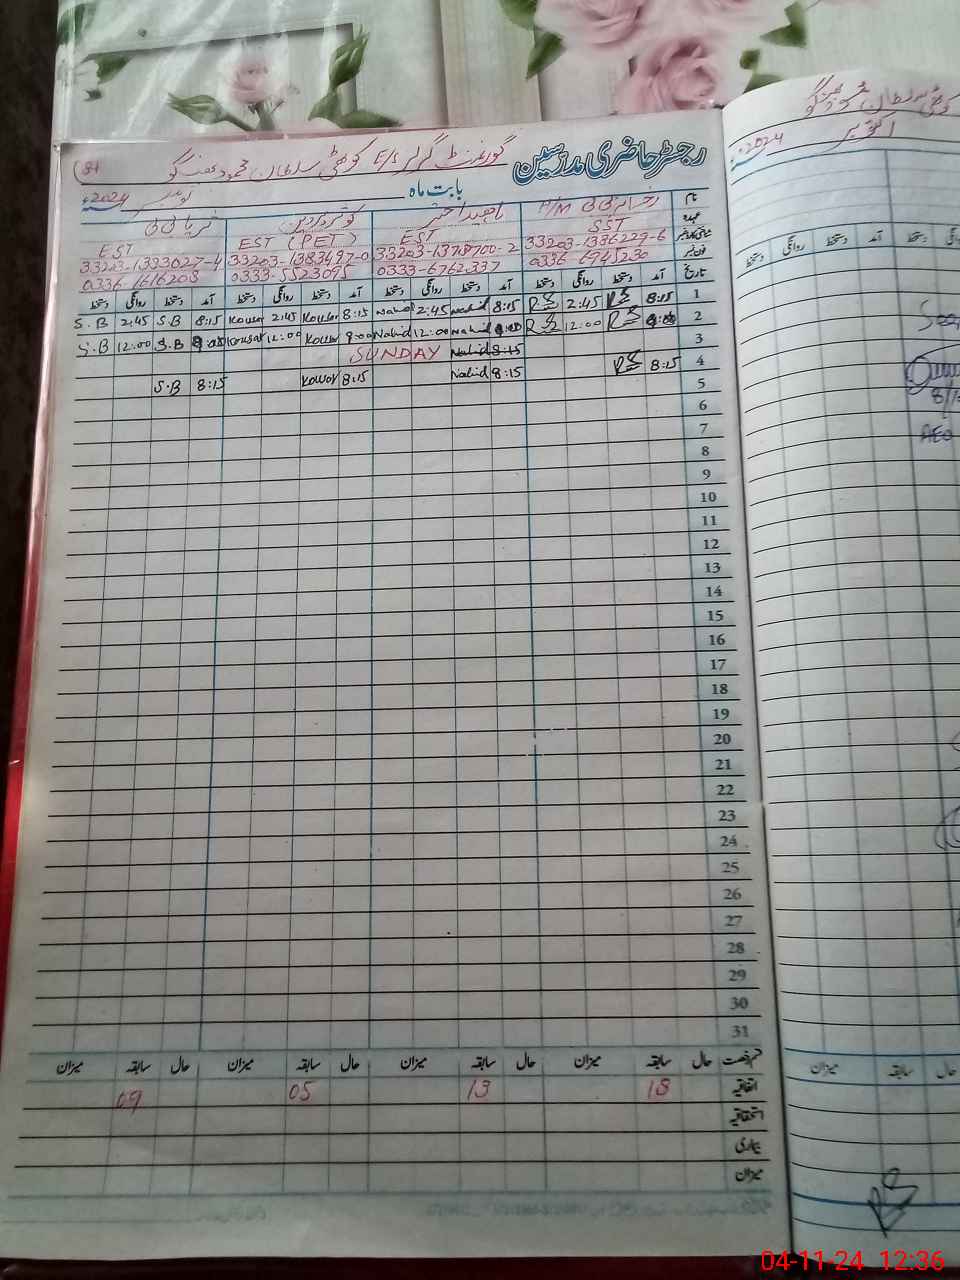 رجسٹر حاضری مدرسین
گورنمنٹ گرلز E/S کوٹھی سلطان محمود بھنگو
(84)
بابت ماہ نومبر 2024ء
نام H/M ناہید اختر کوثر پروین ثریا بی بی
عہدہ SST EST EST (PET) EST
شناختی کارڈ نمبر 33203-1336229-6 33203-1378700-2 33203-1383497-0 33203-1333027-4
فون نمبر 0336-6945230 0333-6762337 0333-5523095 0336-1616208
تاریخ آمد دستخط روانگی دستخط آمد دستخط روانگی دستخط آمد دستخط روانگی دستخط آمد دستخط روانگی دستخط
1 8:15 RS 2:45 RS 8:15 Nahid 2:45 Nahid 8:15 Kousar 2:45 Kousar 8:15 S.B 2:45 S.B
2 9:00 RS 12:00 RS 9:00 Nahid 12:00 Nahid 9:00 Kousar 12:00 Kousar 9:00 S.B 12:00 S.B
3 8:15 Nahid SUNDAY
4 8:15 RS 8:15 Nahid 8:15 Kousar 8:15 S.B
5
6
7
8
9
10
11
12
13
14
15
16
17
18
19
20
21
22
23
24
25
26
27
28
29
30
31
قسم رخصت حال سابقہ میزان حال سابقہ میزان حال سابقہ میزان حال سابقہ میزان
اتفاقیہ 18 13 05 09
استحقاقیہ
بیماری
میزان
اکتوبر 2024ء
آمد دستخط روانگی دستخط
AEO
حال سابقہ میزان
RS
04-11-24 12:36